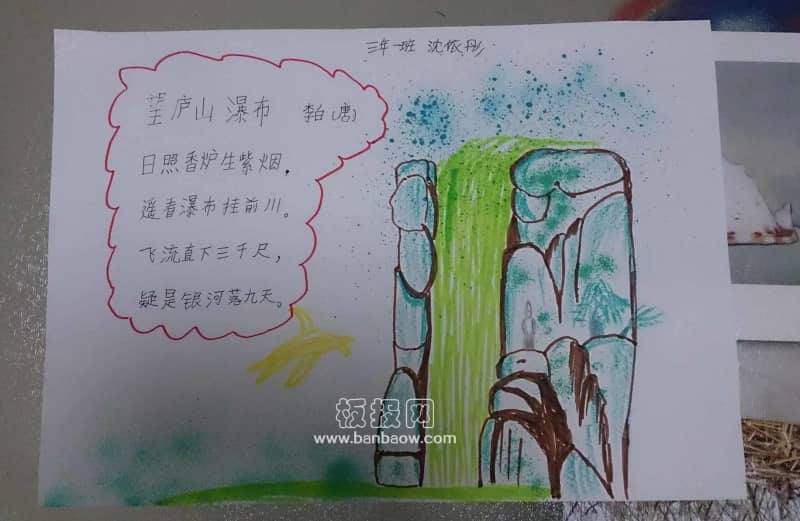 三年一班 沈依彤
望庐山瀑布 李白(唐)
日照香炉生紫烟,
遥看瀑布挂前川。
飞流直下三千尺,
疑是银河落九天。
板报网
www.banbaow.com